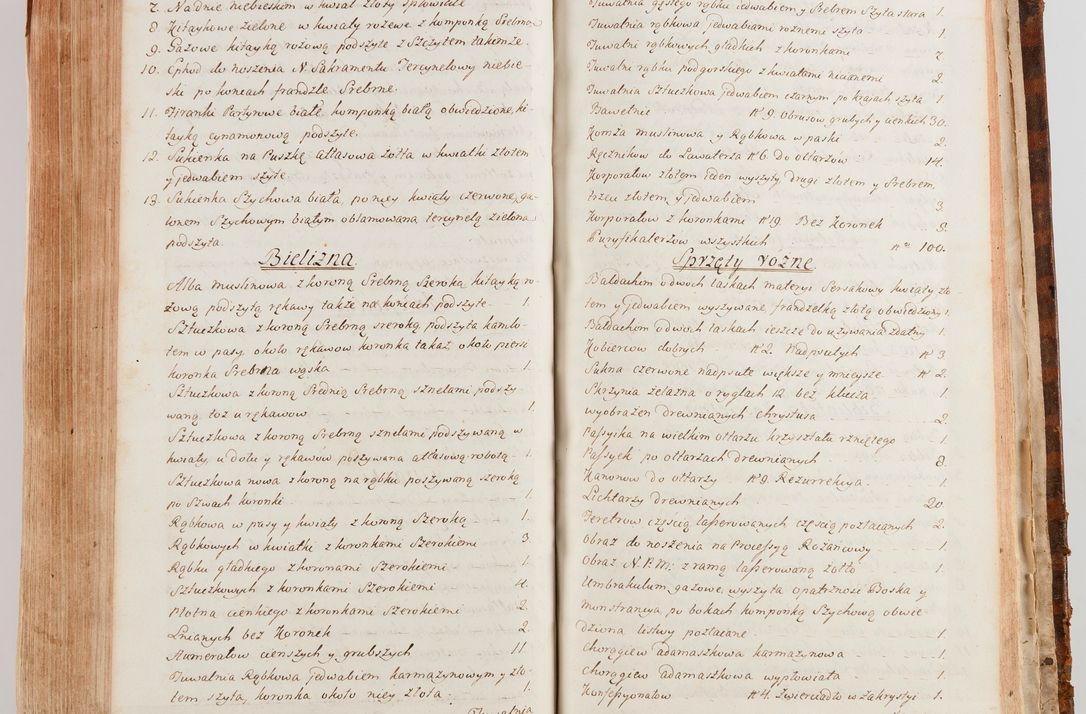 7. Na dnie niebieskim w kwiat złoty
8. Kitaykowe zielone w kwiaty rożowe z komponką Srebrną
9. Gazowe kitayką rożową podszyte z Szczytem takimże.
10. Ephod do noszenia N. Sakramentu Tercynelowy niebie-
ski po końcach frandzle Srebrne.
11. Firanki Partyrowe białe, komponką białą obwiedzione, ki-
tayką cynamonową podszyte.
12. Sukienka na Puszkę atłasowa żołta w kwiatki złotem
y jedwabiem szyte
13. Sukienka Szychowa biała, po niey kwiaty czerwone, ga-
lonem Szychowym białym oblamowana tercynelą zieloną
podszyta.
Bielizna.
Alba muslinowa z koroną Srebrną Szeroką, kitayką ro-
żową podszytą rękawy także na końcach podszyte 1.
Sztuczkowa z koroną Srebrną szeroką, podszyta kamlo-
tem w pasy, około rękawow koronka takaż, około piersi
koronka Srebrna wąska 1.
Sztuczkowa z koroną Srednią Srebrną sznelami podszy-
waną, toż u rękawow 1.
Sztuczkowa z koroną Srebrną sznelami podszywaną w
kwiaty, u dołu y rękawow poszywana atłasową robotą 1.
Sztuczkowa nowa z koroną na rąbku poszywaną szeroką
po Szwach koronki 1.
Rąbkowa w pasy y kwiaty z koroną Szeroką 1.
Rąbkowych w kwiatki z koronkami Szerokiemi 3.
Rąbku gładkiego z koronami Szerokiemi 1.
Sztuczkowych z koronkami Szerokiemi 4.
Płotna cienkiego z koronkami Szerokiemi 2.
Lnianych bez Koronek 2.
Humerałow cienszych y grubszych 11.
Tuwalnia Rąbkowa jedwabiem karmazynowym y zło-
tem szyta, koronka około niey złota 1.
Tuwalnia
Tuwalnia gęstego rąbku jedwabiem y Srebrem Szyta stara 1.
Tuwalnia rąbkowa jedwabiami roznemi szyta 1.
Tuwalni rąbkowych gładkich z koronkami 7.
Tuwalni rąbku podgorskiego z kwiatami nicianemi 2.
Tuwalnia Sztuczkowa jedwabiem czarnym po krajach szyta 1.
Bawełnic N° 9. Obrusow grubych y cienkich 30.
Komża muslinowa y Rąbkowa w paski 2.
Ręcznikow do Lawaterza N° 6. Do ołtarzow 14.
Korporałow złotem jeden wyszyty drugi złotem y Srebrem,
trzeci złotem y jedwabiem 3.
Korporałow z koronkami N° 19. Bez Koronek 9.
Puryfikaterzow wszystkich N° 100.
Sprzęty rożne.
Baldachim o dwoch laskach materyi Persakowy kwiaty zło-
tem y jedwabiem wyszywane, frandzelką złotą obwiedziony 1.
Baldachom o dwoch laskach ieszcze do używania zdatny 1.
Kobiercow dobrych N° 2. Nadpsutych N° 3.
Sukna czerwone nadpsute większe y mnieysze N° 2.
Skrzynia żelazna o ryglach 12. bez klucza 1.
wyobrażen drewnianych Chrystusa 2.
Passyika na wielkim ołtarzu krzyształu rzniętego 1.
Passyek po ołtarzach drewnianych 8.
Kanonow do ołtarzy N° 9. Rezurrekcya 1.
Lichtarzy drewnianych 20.
Feretrow częścią lasserowanych częścią pozłacanych 2.
Obraz do noszenia na Processyą Rożańcowy 1.
Obraz N.P.M. z ramą lasserowaną żołto 1.
Umbrakulum gazowe, wyszyta opatrzność Boska y
Monstrancya, po bokach komponką Szychową obwie-
dziona listwy pozłacane 1.
Chorągiew adamaszkowa karmazynowa 1.
Chorągiew adamaszkowa wypłowiała 1.
Konfessyonałow N° 4. Zwierciadło w Zakrystyi 1.